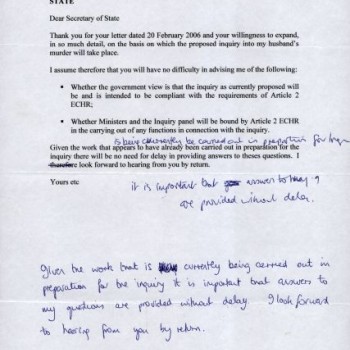 STATE
Dear Secretary of State
Thank you for your letter dated 20 February 2006 and your willingness to expand,
in so much detail, on the basis on which the proposed inquiry into my husband's
murder will take place.
I assume therefore that you will have no difficulty in advising me of the following:
• Whether the government view is that the inquiry as currently proposed will
be and is intended to be compliant with the requirements of Article 2
ECHR;
• Whether Ministers and the Inquiry panel will be bound by Article 2 ECHR
in the carrying out of any functions in connection with the inquiry.
is being currently be carried out in preparation for
Given the work that appears to have already been carried out in preparation for the
inquiry there will be no need for delay in providing answers to theses questions. I
therefore look forward to hearing from you by return.
Yours etc
it is important that answer to my q
are provided without delay.
Given the work that is currently being carried out in
preparation for the inquiry it is important that answers to
my questions are provided without delay. I look forward
to hearing from you by return.